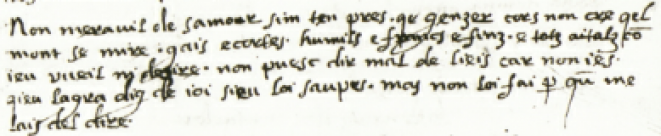 Non meravil de samour sim ten pres. qe genzer cors non cre qel
mont se mire. gais e cortes. humils e francs e finz. e totz aitalz cō
ieu vueil ni desire. non puesc dir mal de lieis car non i es.
qieu lagra dig de ioi sieu loi saupes. mas non loi sai ꝑ qū me
lais del dire.